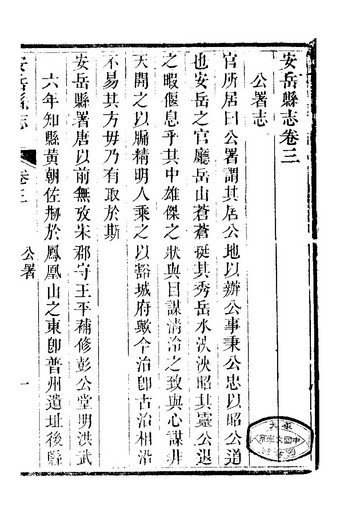 安岳縣志卷三
公署志
官所居曰公署謂其居公地以辦公事秉公忠以昭公道
也安岳之官廳岳山蒼蒼挺其秀岳水泱泱昭其靈公退
之暇偃息乎其中雄傑之狀與目謀清泠之致與心謀非
天開之以牖精明人乘之以豁城府歟今治卽古治相沿
不易其方毋乃有取於斯
安岳縣署唐以前無攷宋郡守王平補修彭公堂明洪武
六年知縣黃朝佐剏於鳳凰山之東卽普州遺址後縣
安岳縣志
卷三
公署
一